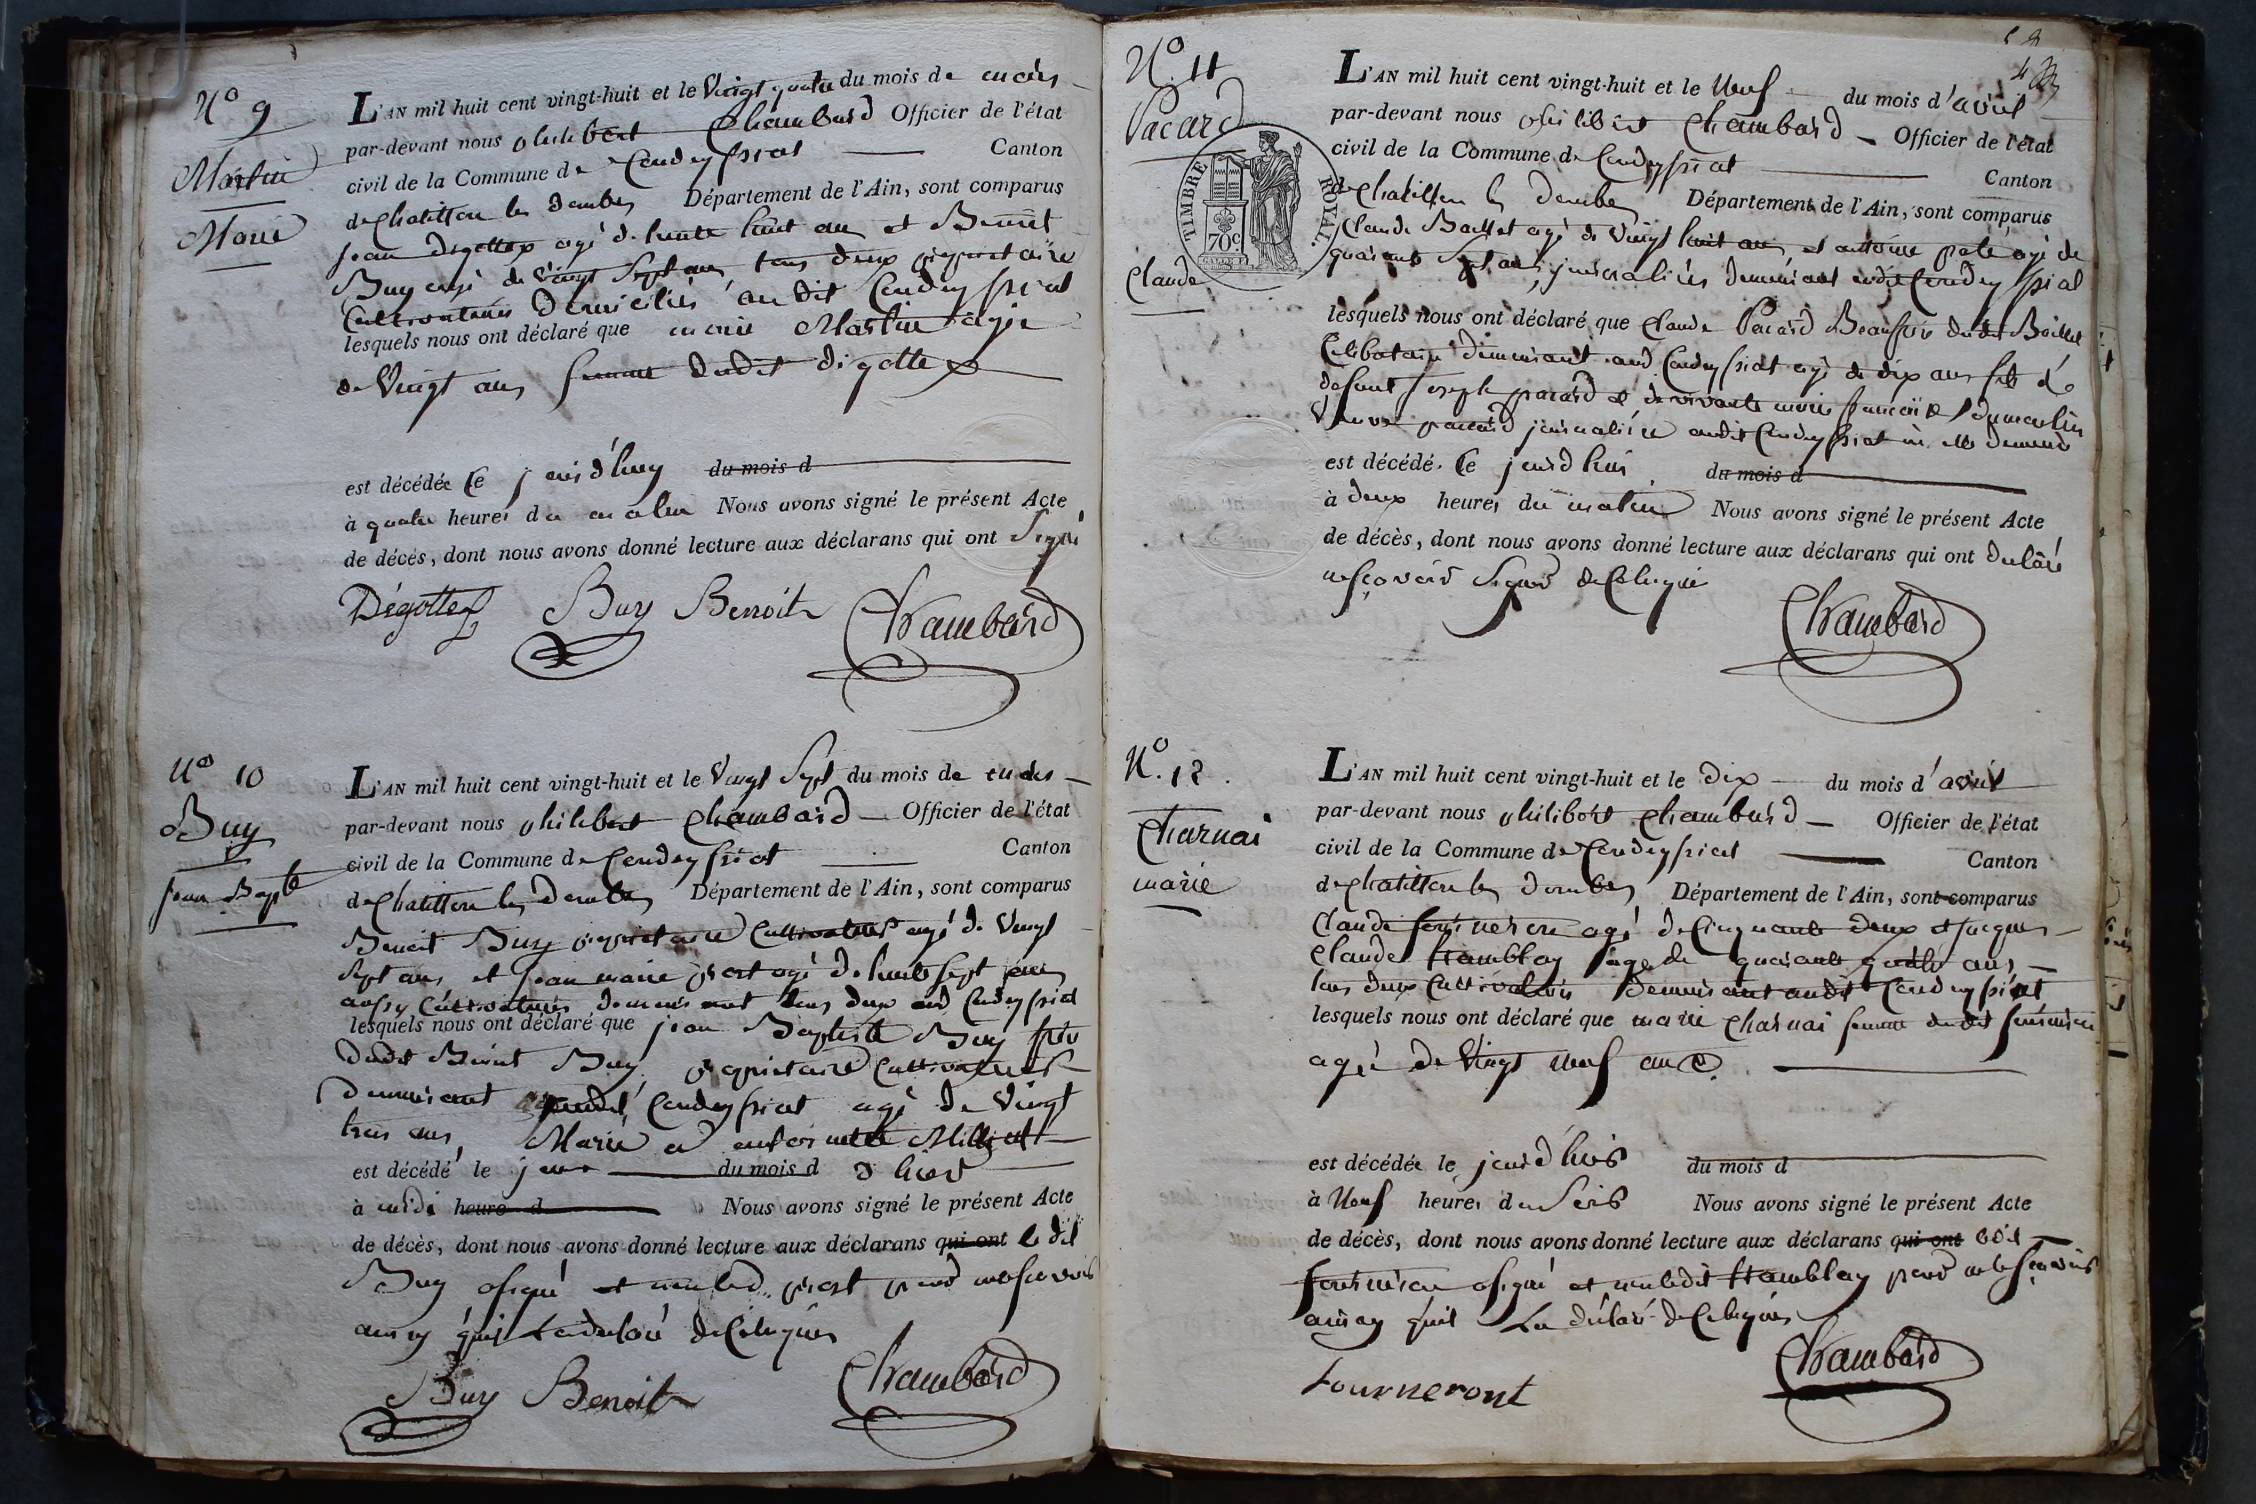 N° 9
Martin
Marie
L'AN mil huit cent vingt-huit et le Vingt quatre du mois de mars
par-devant nous philibert Chambard Officier de l'état
civil de la Commune de Condeyssiat Canton
de Chatillon les dombes Département de l'Ain, sont comparus
jean degottex agé de trente huit ans et Benoit
Buy agé de vingt Sept ans tous deux proprietaire
Cultivateurs domiciliés audit Condeyssiat
lesquels nous ont déclaré que marie Martin agée
de Vingt ans femme dudit digottex
est décédée Ce jourd'huy du mois d
à quatre heures du matin Nous avons signé le présent Acte
de décès, dont nous avons donné lecture aux déclarans qui ont Signé
Dégottex Buy Benoit Chambard
N° 10
Buy
jean Bapte
L'AN mil huit cent vingt-huit et le Vingt Sept du mois de mars
par-devant nous philibert Chambard Officier de l'état
civil de la Commune de Condeyssiat Canton
de Chatillon les Dombes Département de l'Ain, sont comparus
Benoit Buy propriétaire Cultivateur agé de Vingt
Sept ans et jean marie agé de trente sept ans
aussy Cultivateurs demeurant tous deux aud Condeyssiat
lesquels nous ont déclaré que jean Baptiste Buy frère
dudit Benoit Buy propriétaire Cultivateur
demeurant audit Condeyssiat agé de Vingt
trois ans, Marié a antoinette
est décédé le jour du mois d d'hier
à midi heure d Nous avons signé le présent Acte
de décès, dont nous avons donné lecture aux déclarans qui ont le dit
Buy a signé et non led. pour ne scavoir
ainsy qu'il la declaré de Ce enquis
Buy Benoit Chambard
N°. 11
Pacard
Claude
TIMBRE ROYAL.
70c
L'AN mil huit cent vingt-huit et le Neuf du mois d'avril
par-devant nous philibert Chambard Officier de l'état
civil de la Commune de Condeyssiat Canton
de Chatillon les Dombes Département de l'Ain, sont comparus
Claude Baillet agé de Vingt huit ans et antoine pate agé de
quarante Sept ans, journaliers demeurant audit Condeyssiat
lesquels nous ont déclaré que Claude Pacard Beaufrère dudit Baillet
Celibataire demeurant aud Condeyssiat agé de dix ans fils de
defunt Joseph pacard et de vivante marie françoise dumoulin
Veuve pacard journalière audit Condeyssiat où elle demeure
est décédé. Ce jourd'hui du mois d
à deux heures du matin Nous avons signé le présent Acte
de décès, dont nous avons donné lecture aux déclarans qui ont declaré
ne sçavoir signer de Ce enquis
Chambard
N°. 12.
Charnai
marie
L'AN mil huit cent vingt-huit et le dix du mois d'avril
par-devant nous philibert Chambard Officier de l'état
civil de la Commune de Condeyssiat Canton
de Chatillon les Dombes Département de l'Ain, sont comparus
Claude fourneron agé de Cinquante deux et jacques
Claude tramblay age de quarante quatre ans
tous deux Cultivateurs demeurant audit Condeyssiat
lesquels nous ont déclaré que marie Charnai femme dudit fourneron
agée de Vingt neuf ans.
est décédée le jourd'hui du mois d
à Neuf heures du Soir Nous avons signé le présent Acte
de décès, dont nous avons donné lecture aux déclarans qui ont
fourneron a signé et non ledit tramblay pour ne le sçavoir
ainsy qu'il la déclaré de Ce enquis
Fourneront Chambard